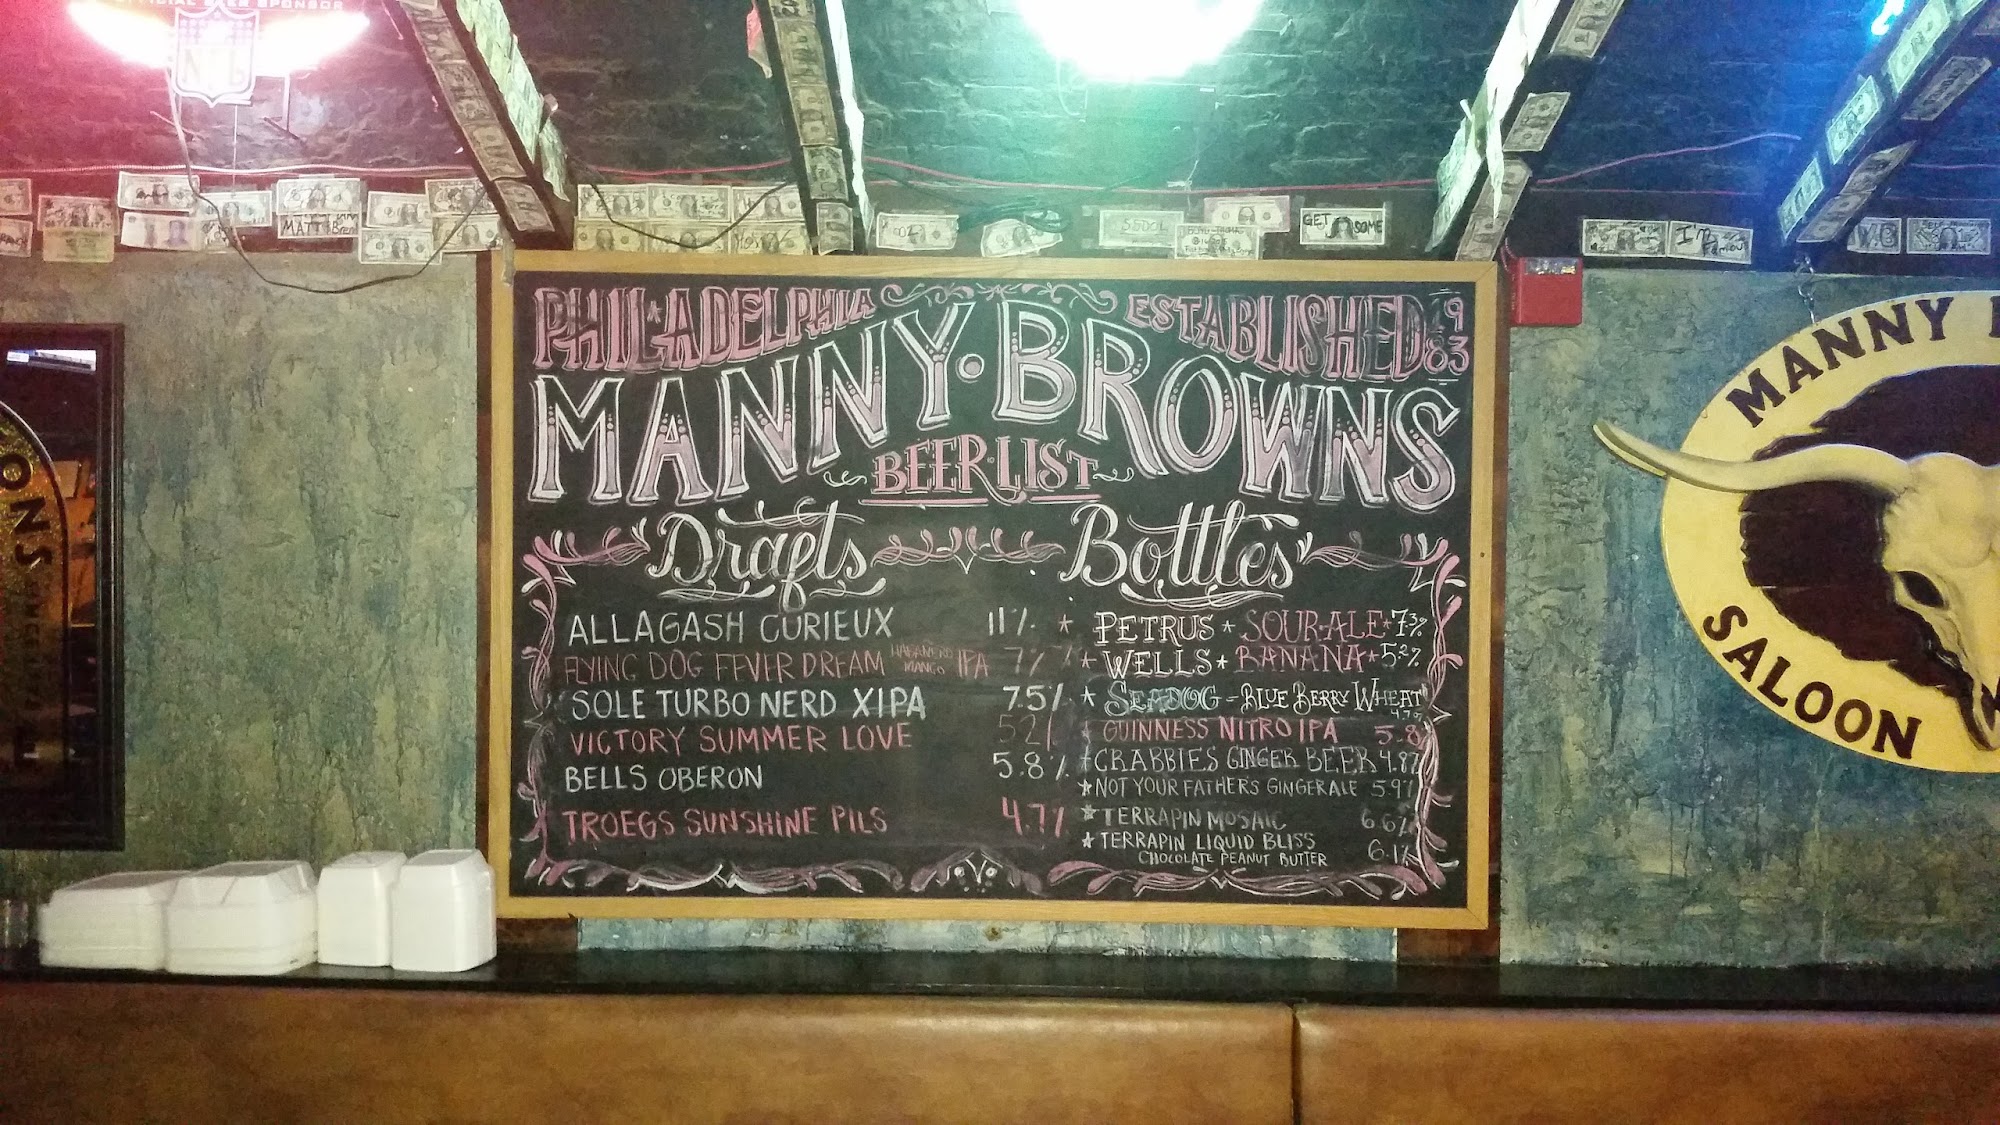 OFFICIAL BEER SPONSOR
NFL
MATT
GET SOME
PHILADELPHIA
ESTABLISHED 1983
MANNY · BROWNS
BEER · LIST
Drafts
Bottles
ALLAGASH CURIEUX 11%
FLYING DOG FEVER DREAM HABANERO MANGO IPA 7%
SOLE TURBO NERD XIPA 7.5%
VICTORY SUMMER LOVE 5.2%
BELLS OBERON 5.8%
TROEGS SUNSHINE PILS 4.7%
* PETRUS * SOUR ALE * 7.3%
* WELLS * BANANA * 5.2%
* SEADOG - BLUE BERRY WHEAT
4.7%
* GUINNESS NITRO IPA 5.8
* CRABBIES GINGER BEER 4.8%
* NOT YOUR FATHERS GINGERALE 5.9%
* TERRAPIN MOSAIC 6.6%
* TERRAPIN LIQUID BLISS 6.1%
CHOCOLATE PEANUT BUTTER
MANNY
SALOON